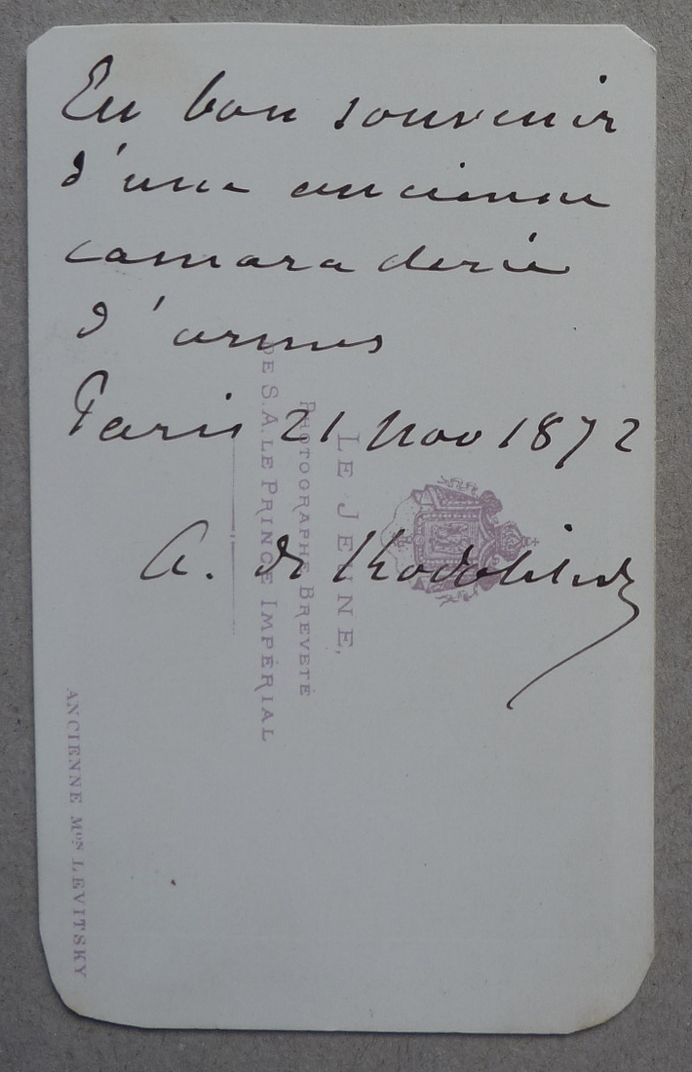 En bon souvenir
d'une ancienne
camaraderie
d'armes
Paris 21 Nov 1872
A. de
LE JEUNE,
PHOTOGRAPHE BREVETÉ
DE S.A. LE PRINCE IMPÉRIAL
ANCIENNE Mon LEVITSKY